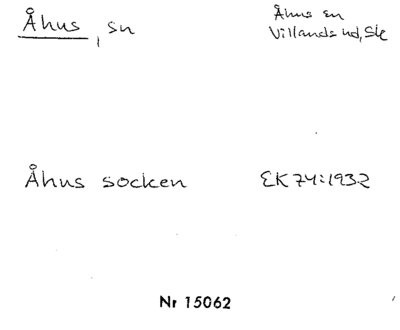 Åhus, sn
Åhus sn
Villands hd, Sk
Åhus socken
EK 74:1932
Nr 15062